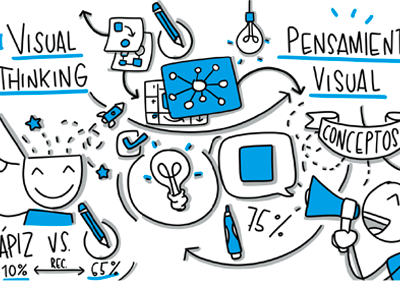 VISUAL
THINKING
PENSAMIENT
VISUAL
CONCEPTOS
75%
ÁPIZ VS.
REC.
10%
65%